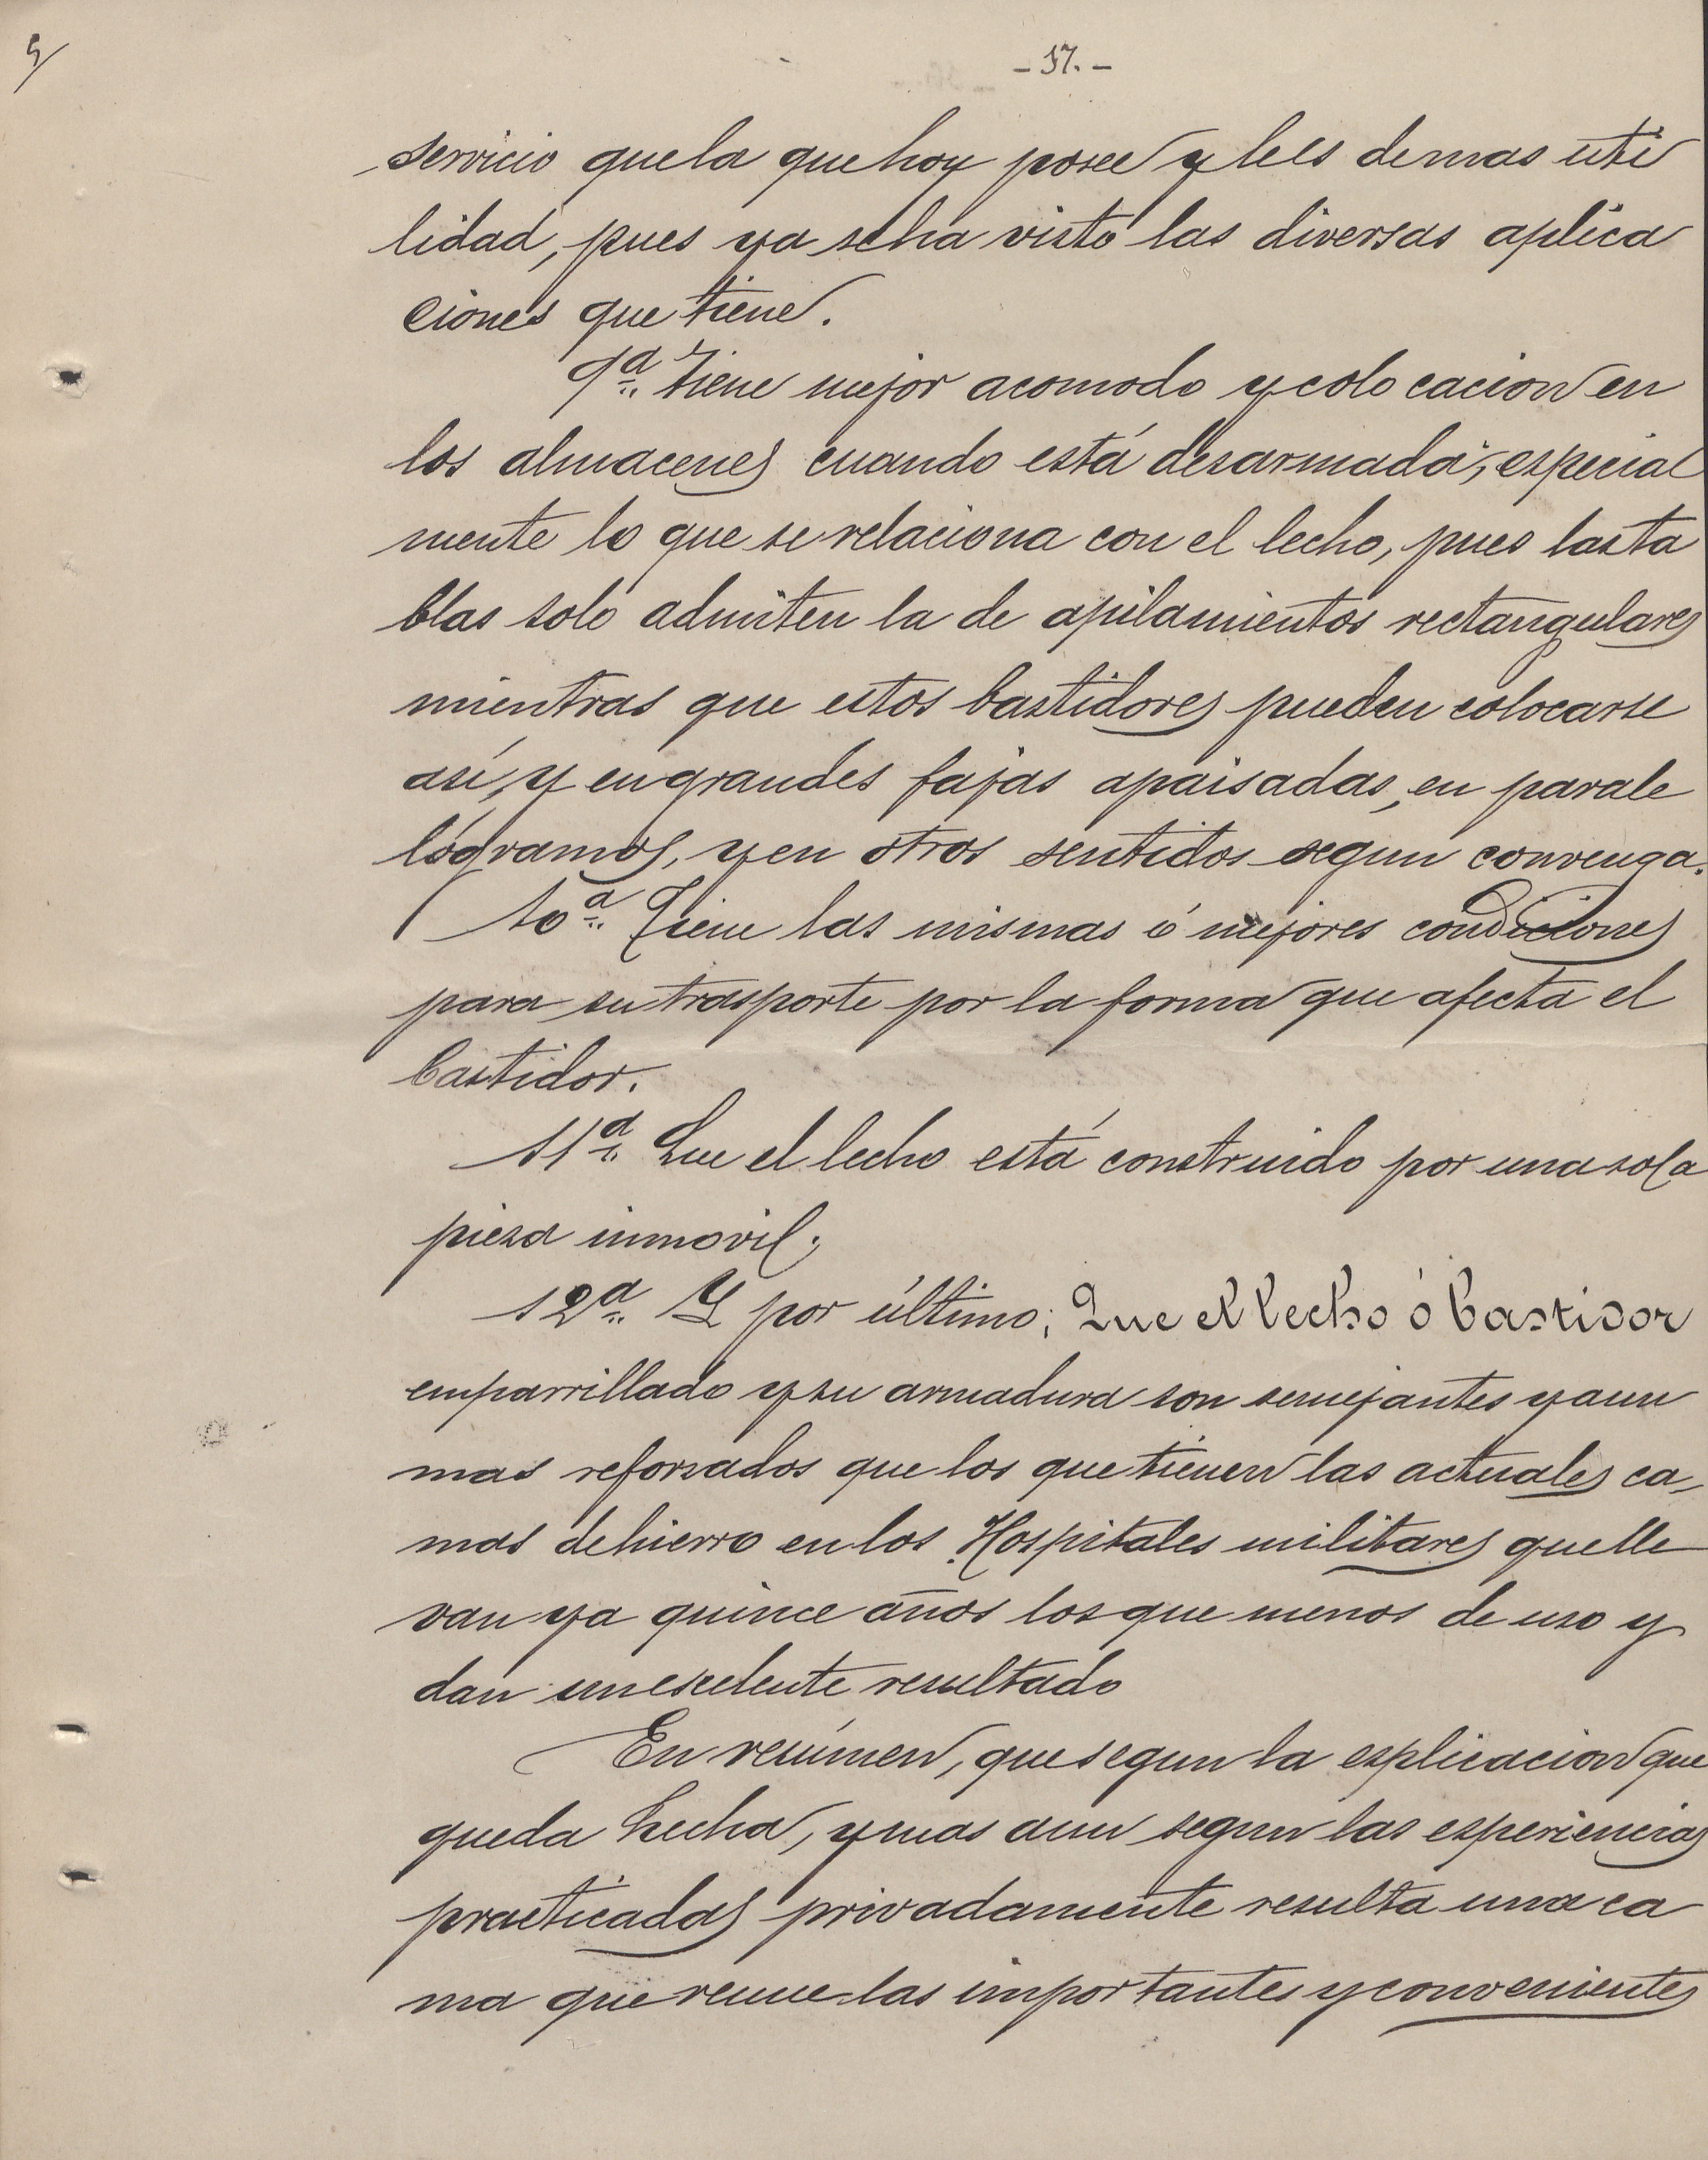 9
- 17. -
servicio que la que hoy posee y le es de mas uti
lidad, pues ya se ha visto las diversas aplica
ciones que tiene.
9ª Tiene mejor acomodo y colocacion en
los almacenes cuando está desarmada, especial
mente lo que se relaciona con el lecho, pues las ta
blas solo admiten la de apilamientos rectangulares
mientras que estos bastidores pueden colocarse
así, y en grandes fajas apaisadas, en parale
lógramos, y en otros sentidos segun convenga.
10ª Tiene las mismas ó mejores condiciones
para su trasporte por la forma que afecta el
bastidor.
11ª Que el lecho está construido por una sola
pieza inmovil;
12ª Y por último; Que el lecho ó bastidor
emparrillado y su armadura son semejantes y aun
mas reforzados que los que tienen las actuales ca-
mas de hierro en los Hospitales militares que lle
van ya quince años los que menos de uso y
dan un escelente resultado
En resúmen, que segun la esplicacion que
queda hecha, y mas aun segun las esperiencias
practicadas privadamente resulta una ca
ma que reune las importantes y convenientes